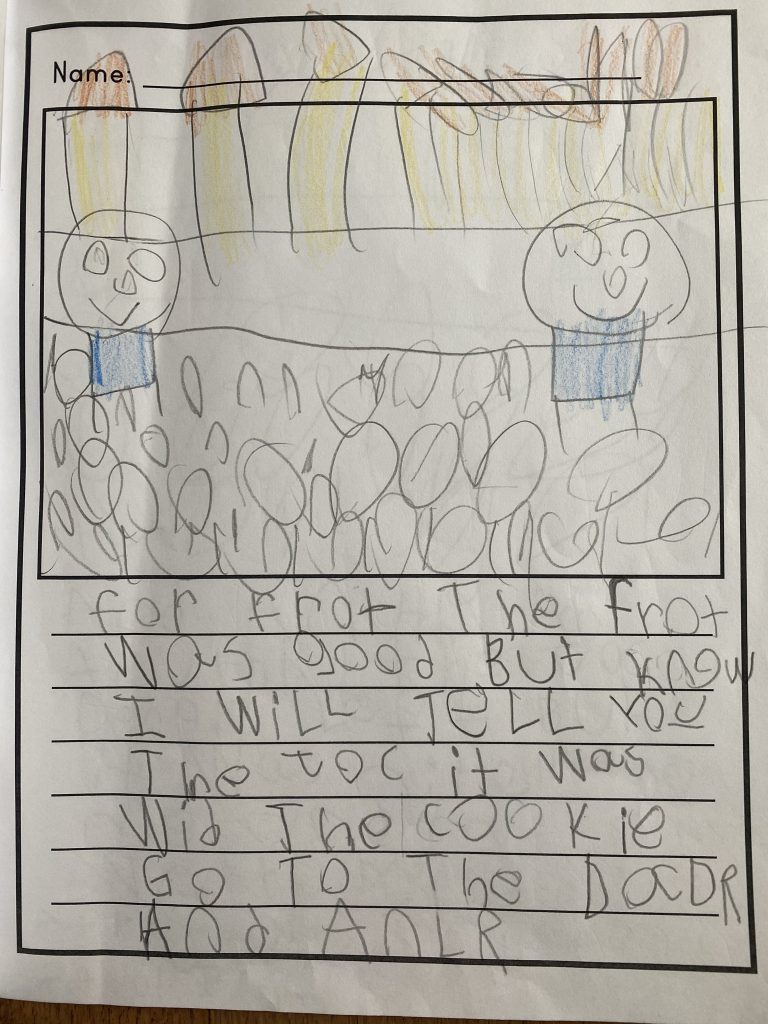 Name:
for frot The frot
was good But know
I WiLL TELL YOU
The toc it was
Wid The cookie
Go TO The DocDR
And AnLR